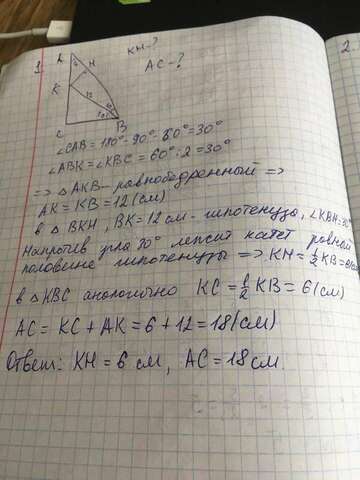 1.
A
H
K
12
C
B
KH-?
AC-?
2.
∠CAB = 180°- 90°- 60° = 30°
∠ABK = ∠KBC = 60°: 2 = 30°
=> △AKB- равнобедренный =>
AK = KB = 12(см)
в △BKH, BK = 12 см - гипотенуза, ∠KBH = 30°
Напротив угла 30° лежит катет равный
половине гипотенузы => KH = ½ KB = 6(см)
в △KBC аналогично KC = ½ KB = 6(см)
AC = KC + AK = 6 + 12 = 18(см)
Ответ: KH = 6 см, AC = 18 см.